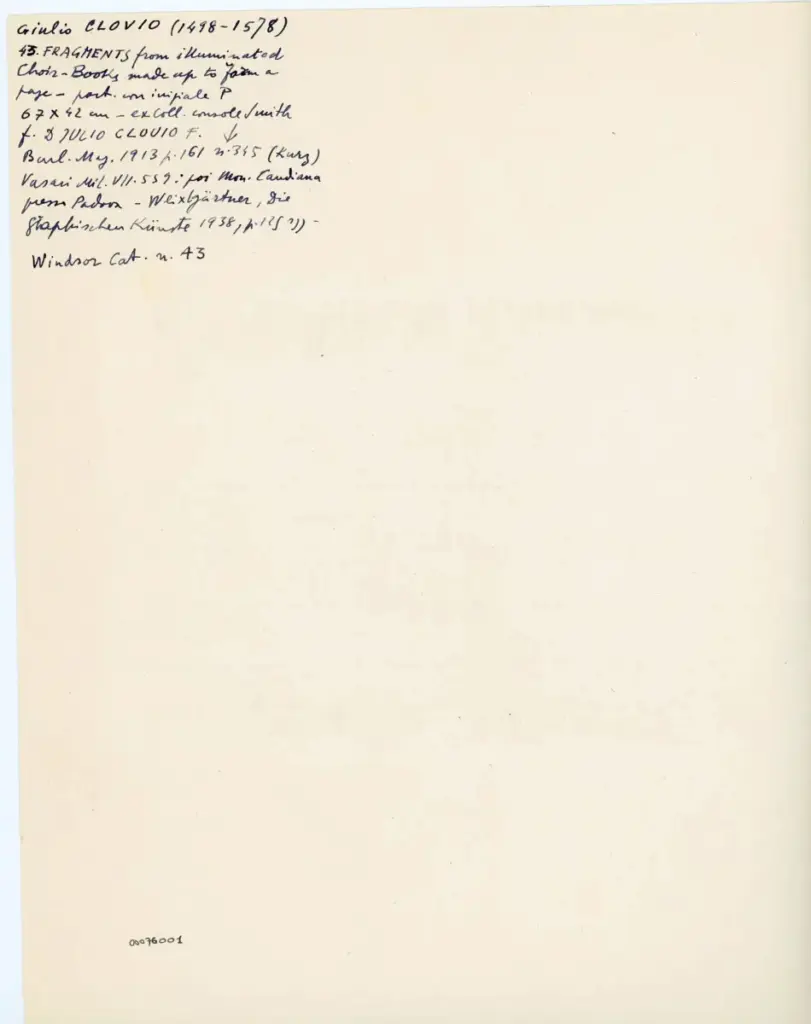 Giulio CLOVIO (1498-1578)
43. FRAGMENTS from illuminated
Choir-Books made up to form a
page - part. con iniziale P
67 x 42 cm - ex Coll. console Smith
f. D JULIO CLOVIO F. ↓
Burl. Mag. 1913 p. 161 n. 345 (Kurz)
Vasari Mil. VII. 559: poi Mon. Candiana
presso Padova - Weixlgärtner, Die
Graphischen Künste 1938, p.
Windsor Cat. n. 43
00076001